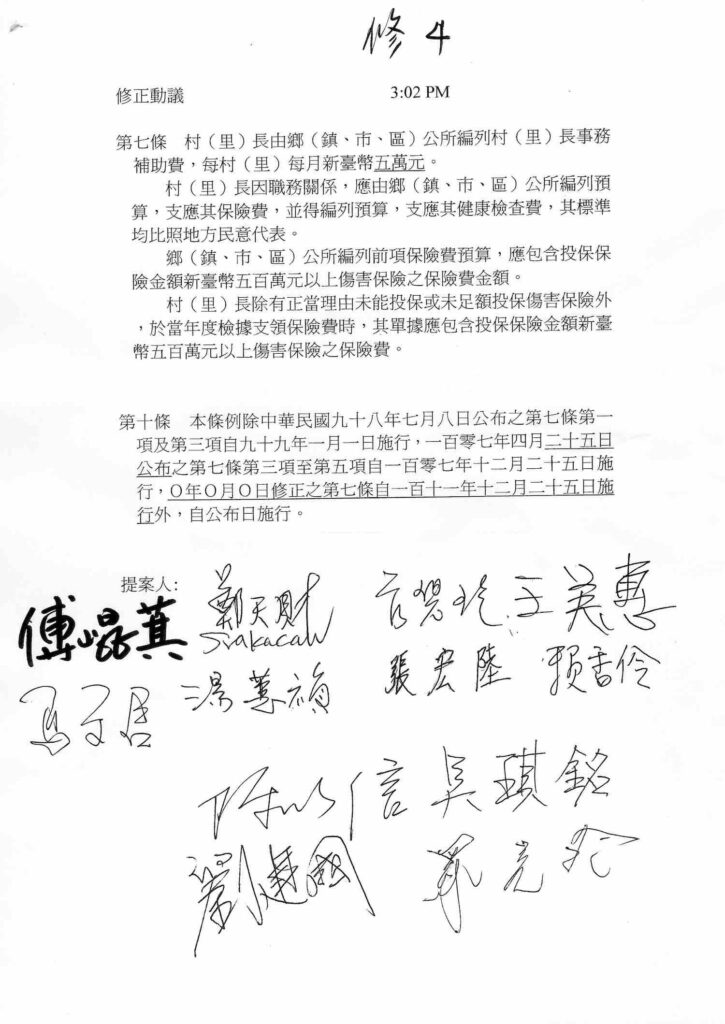 修 4
修正動議 3:02 PM
第七條 村(里)長由鄉(鎮、市、區)公所編列村(里)長事務
補助費,每村(里)每月新臺幣五萬元。
村(里)長因職務關係,應由鄉(鎮、市、區)公所編列預
算,支應其保險費,並得編列預算,支應其健康檢查費,其標準
均比照地方民意代表。
鄉(鎮、市、區)公所編列前項保險費預算,應包含投保保
險金額新臺幣五百萬元以上傷害保險之保險費金額。
村(里)長除有正當理由未能投保或未足額投保傷害保險外
,於當年度檢據支領保險費時,其單據應包含投保保險金額新臺
幣五百萬元以上傷害保險之保險費。
第十條 本條例除中華民國九十八年七月八日公布之第七條第一
項及第三項自九十九年一月一日施行,一百零七年四月二十五日
公布之第七條第三項至第五項自一百零七年十二月二十五日施
行,○年○月○日修正之第七條自一百十一年十二月二十五日施
行外,自公布日施行。
提案人: 鄭天財 王美惠
傅崐萁 Sra Kacaw
湯蕙禎 張宏陸 賴香伶
陳以信 吳琪銘
劉建國